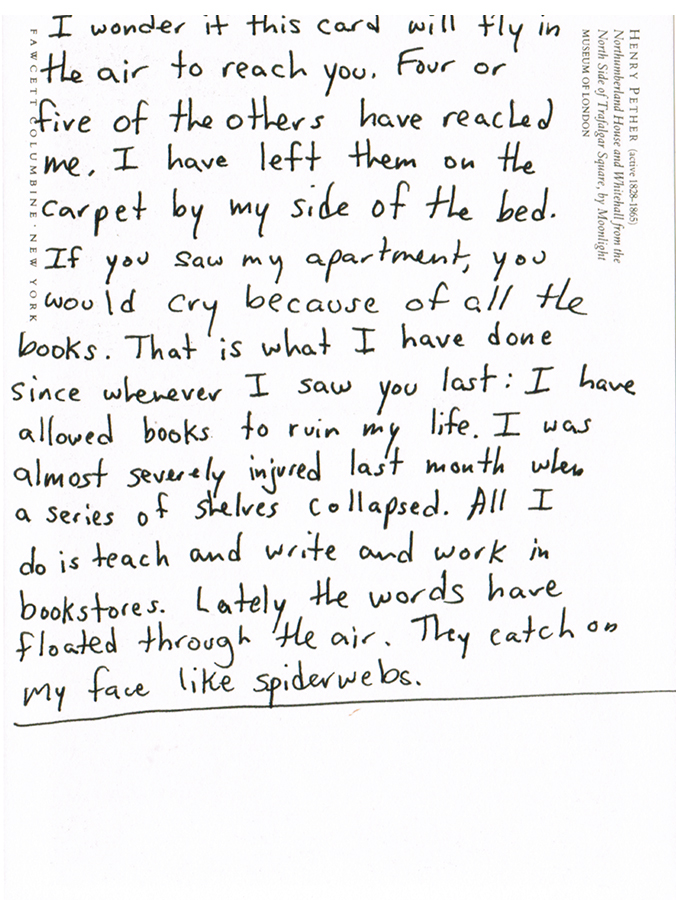 I wonder if this card will fly in
the air to reach you. Four or
five of the others have reached
me. I have left them on the
carpet by my side of the bed.
If you saw my apartment, you
would cry because of all the
books. That is what I have done
since whenever I saw you last: I have
allowed books to ruin my life. I was
almost severely injured last month when
a series of shelves collapsed. All I
do is teach and write and work in
bookstores. Lately the words have
floated through the air. They catch on
my face like spiderwebs.
FAWCETT COLUMBINE · NEW YORK
HENRY PETHER (active 1828-1865)
Northumberland House and Whitehall from the
North Side of Trafalgar Square, by Moonlight
MUSEUM OF LONDON